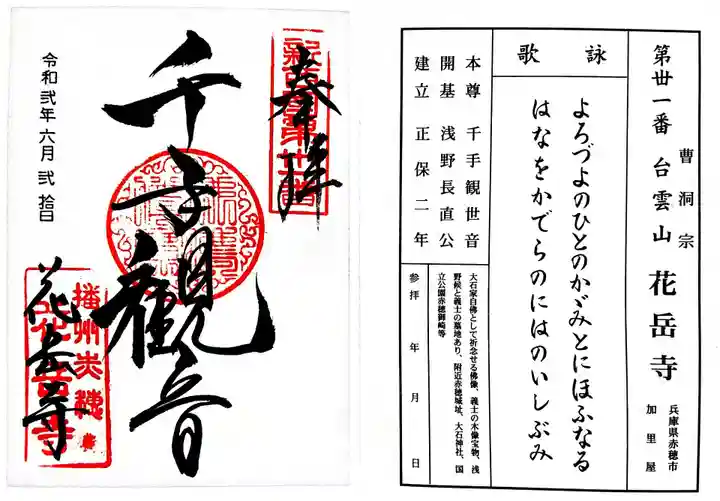 奉拝
千手観音
花岳寺
令和弐年六月弐拾日
第丗一番 台雲山 花岳寺
曹洞宗
兵庫県赤穂市
加里屋
詠歌
よろづよのひとのかゞみとにほふなる
はなをかでらのにはのいしぶみ
本尊 千手観世音
開基 浅野長直公
建立 正保二年
大石家自佛として祈念せる佛像、義士の木像宝物、浅
野候と義士の墓地あり、附近赤穂城址、大石神社、国
立公園赤穂御崎等
参拝 年 月 日